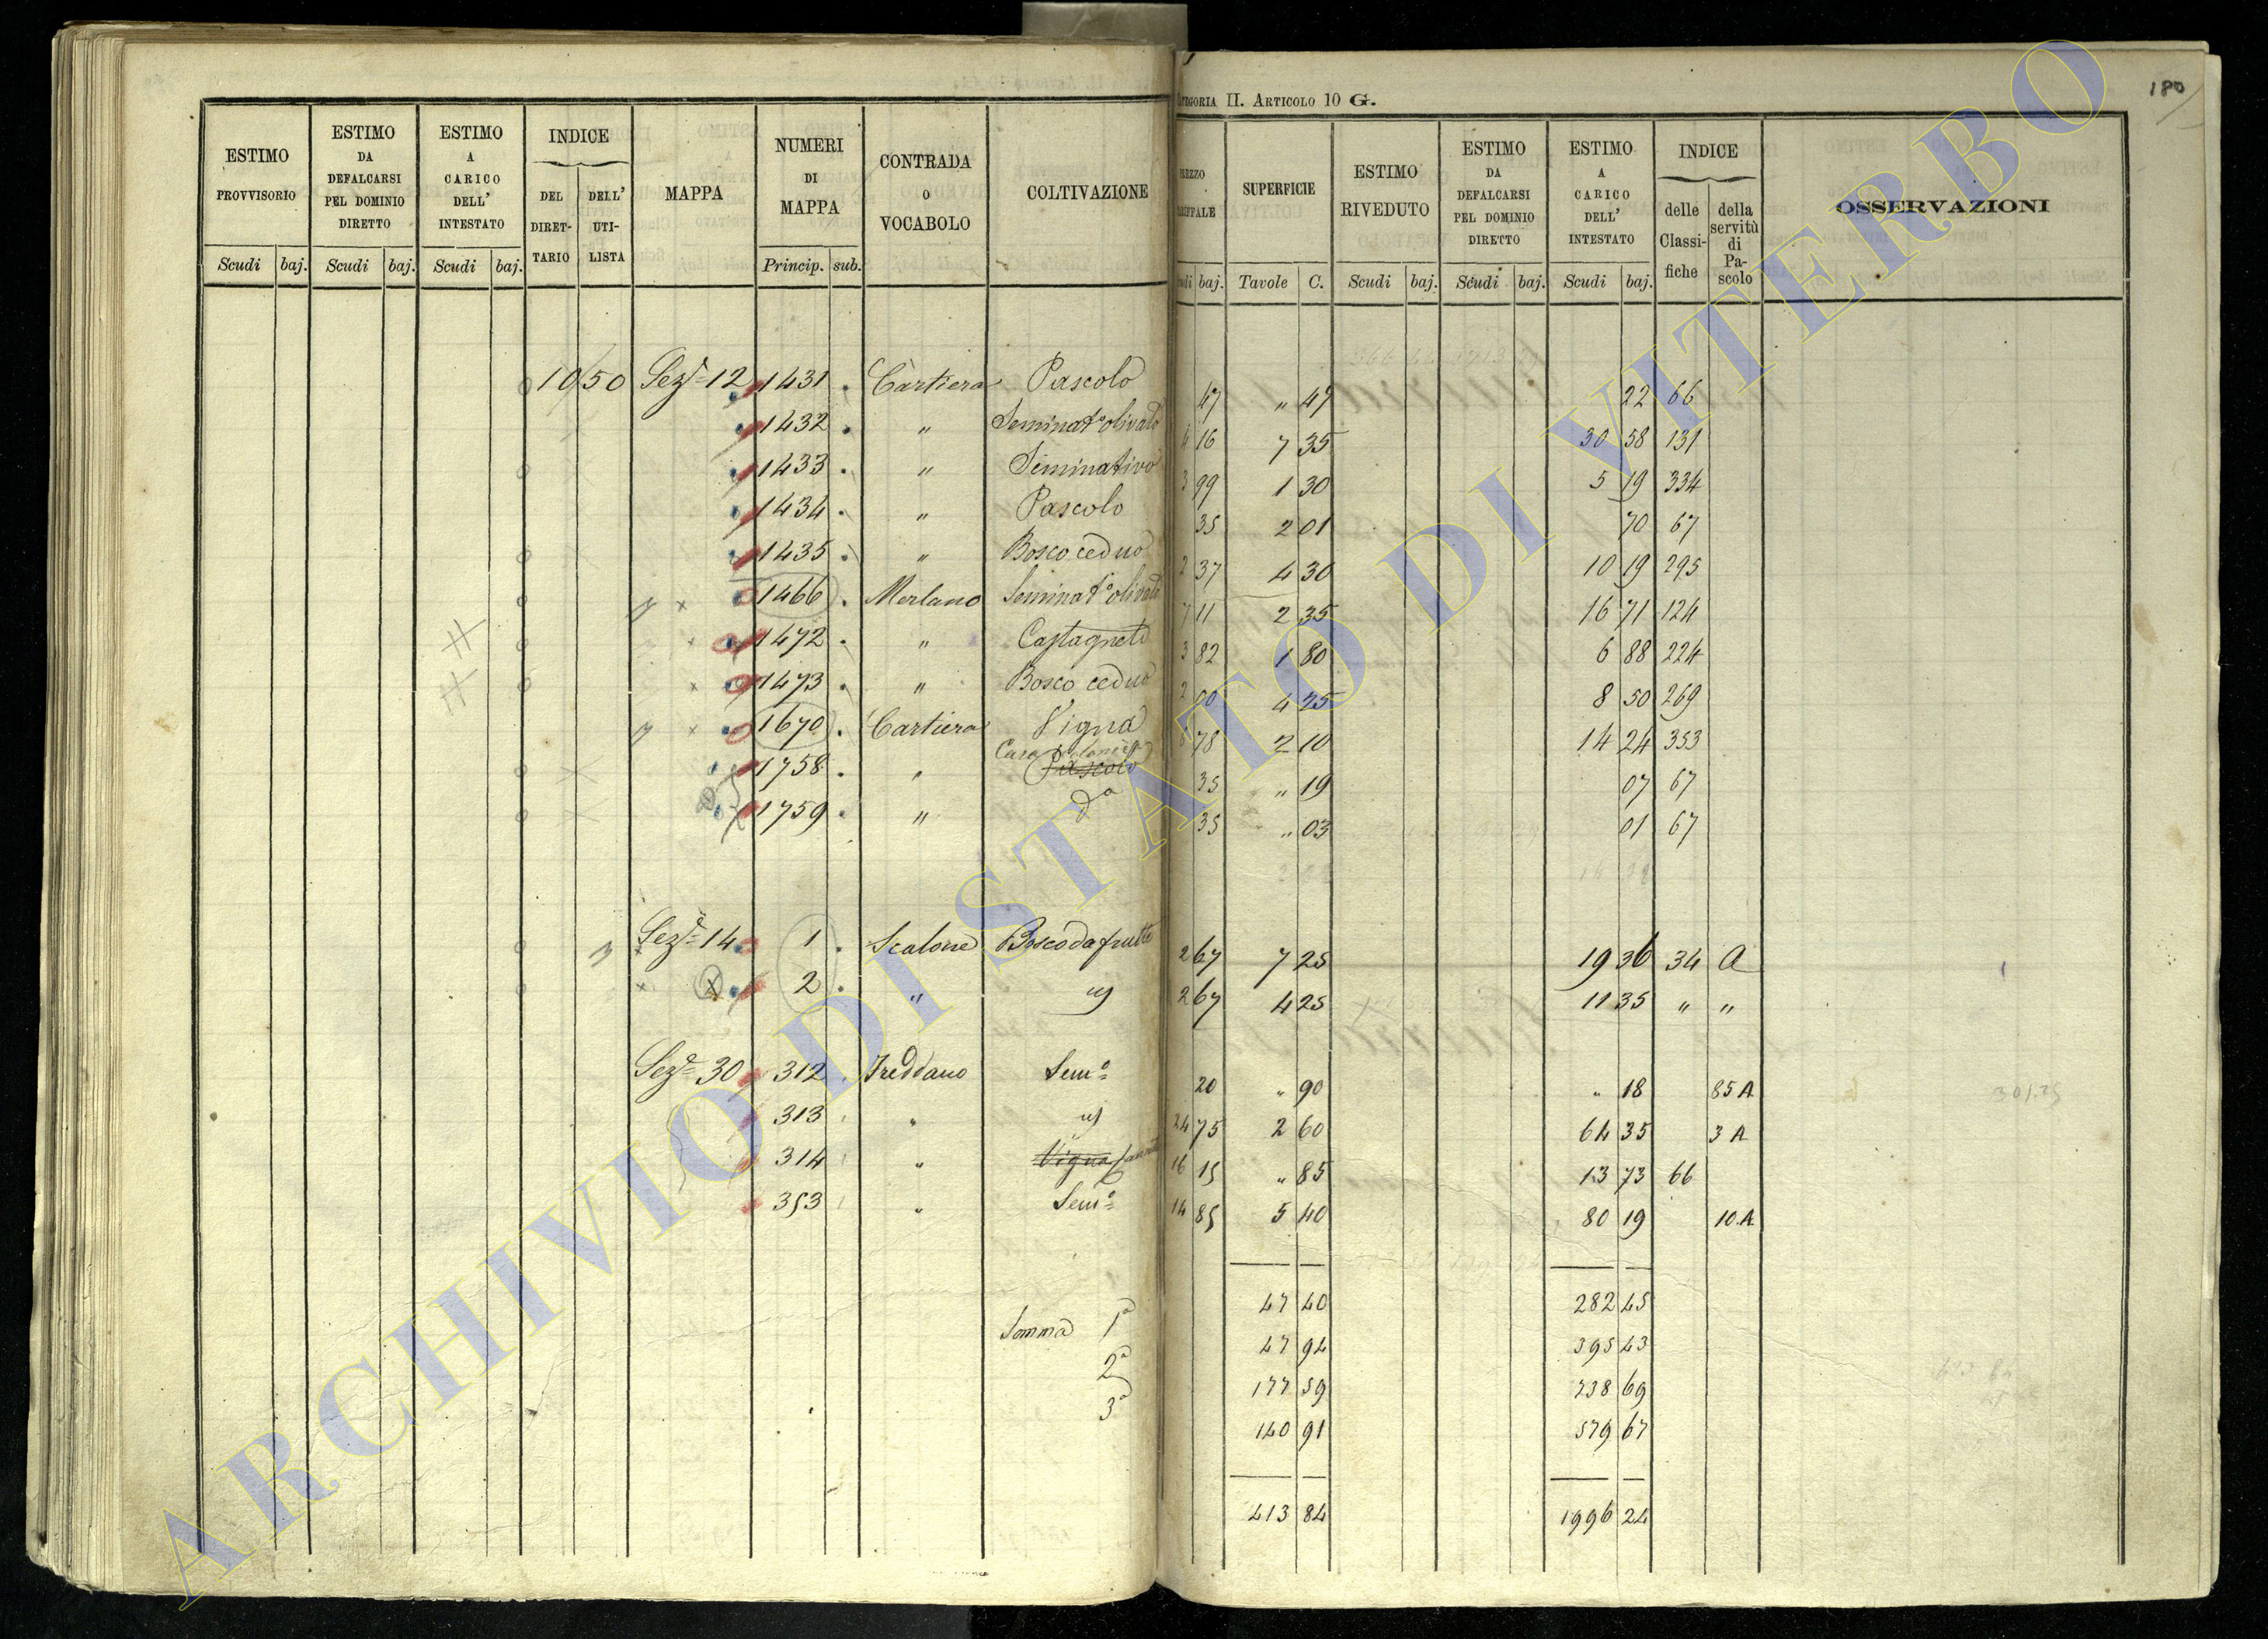 CATEGORIA II. ARTICOLO 10 G.
180
ESTIMO PROVVISORIO
ESTIMO DA DEFALCARSI PEL DOMINIO DIRETTO
ESTIMO A CARICO DELL' INTESTATO
INDICE
DEL DIRETTARIO
DELL' UTILISTA
MAPPA
NUMERI DI MAPPA
CONTRADA O VOCABOLO
COLTIVAZIONE
PREZZO TARIFFALE
SUPERFICIE
ESTIMO RIVEDUTO
ESTIMO DA DEFALCARSI PEL DOMINIO DIRETTO
ESTIMO A CARICO DELL' INTESTATO
INDICE
delle Classifiche
della servitù di Pascolo
OSSERVAZIONI
Scudi baj. Scudi baj. Scudi baj. Princip. sub. Scudi baj. Tavole C. Scudi baj. Scudi baj. Scudi baj.
10/50 Sezᵉ 12 1431 Cartiera Pascolo 47 " 47 22 66
1432 " Seminatº olivato 4 16 7 35 30 58 131
1433 " Seminativo 3 99 1 30 5 19 334
1434 " Pascolo 35 2 01 70 67
1435 " Bosco ceduo 2 37 4 30 10 19 295
1466 Merlano Seminatº olivato 7 11 2 35 16 71 124
1472 " Castagneto 3 82 1 80 6 88 224
1473 " Bosco ceduo 2 00 4 25 8 50 269
1670 Cartiera Vigna 6 78 2 10 14 24 353
1758 " Casa colonica Pascolo 35 " 19 07 67
1759 " dª 35 " 03 01 67
Sezᵉ 14 1 Scalone Bosco da frutto 2 67 7 25 19 36 34 A
2 " " 2 67 4 25 11 35 " "
Sezᵉ 30 312 Freddano Semº 20 " 90 " 18 85 A
313 " " 24 75 2 60 64 35 3 A
314 " Vigna 16 15 " 85 13 73 66
353 " Semº 14 85 5 40 80 19 10 A
47 40 282 45
Somma 1ª 47 94 395 43
2ª 177 59 738 69
3ª 140 91 579 67
413 84 1996 24
ARCHIVIO DI STATO DI VITERBO